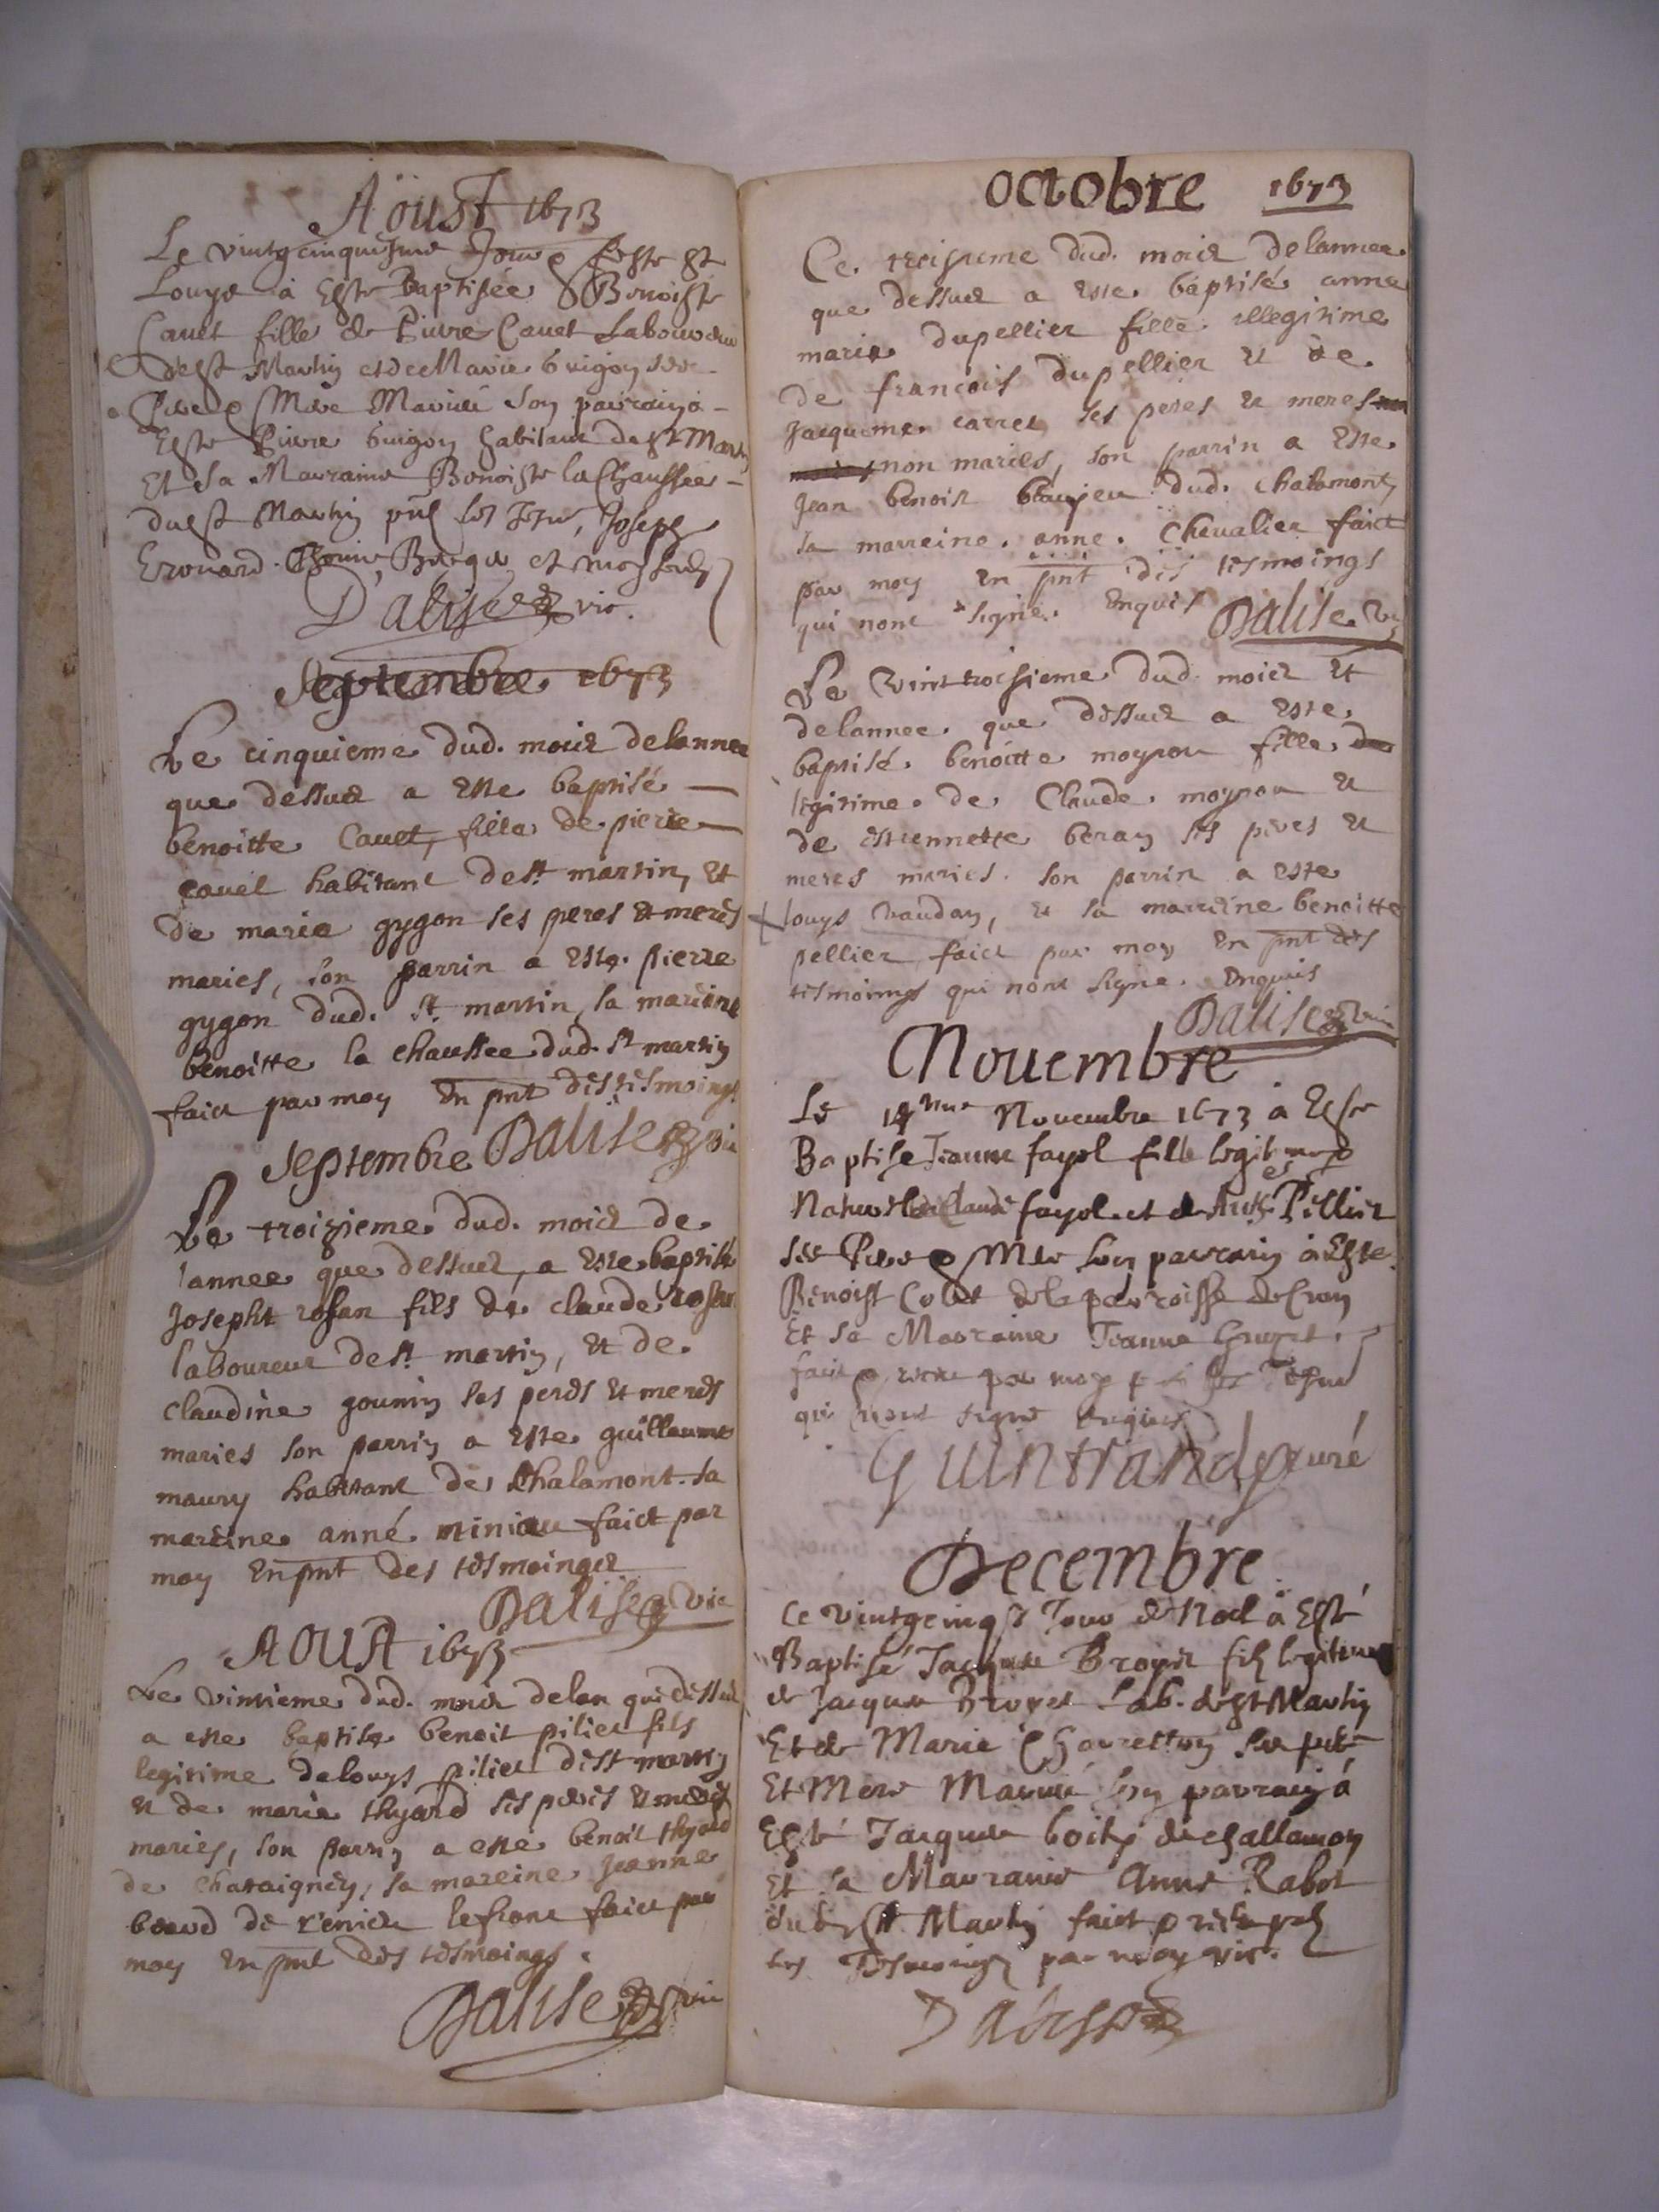 Aoust 1673
Le vintgcinquiesme Jour feste st
Louys à Este Baptisée Benoiste
Cauet fille de Pierre Cauet Laboureur
de st Martin et de Marie Guigon ses
Pere Mere Mariés son parrain a
Este Pierre Guigon habitant de st Mart
Et sa Marraine Benoiste la Chaussée
du st Martin Joseph
Erouard et moy
Dalise vic.
Septembre 1673
Le cinquieme dud. mois delannee
que dessus a este baptisé
benoitte Cauet, fille de pierre
cauet habitant de st martin, et
de marie gygon ses peres et meres
maries, son parrin a este pierre
gygon dud. st martin, sa mareine
benoitte la chaussee dud. st martin
faict par moy en pnt des tesmoings
Septembre Dalise vic
Le troizieme dud. mois de
lannee que dessus, a este baptisé
Josepht rosan fils de claude rosan
laboureur de st martin, et de
claudine gounin ses peres et meres
maries son parrin a este guillaume
maury habitant de Chalamont. sa
mareine anné miniau faict par
moy en pnt des tesmoinges
Dalise vic
AOUST 1673
Le vintieme dud. mois delan que dessus
a este baptisé benoit pilier fils
legitime de louys pilier de st martin
et de marie thyard ses peres et meres
maries, son parrin a este benoit thyard
de chataigney, sa mareine Jeanne
faict par
moy en pnt des tesmoings.
Dalise vic
octobre 1673
Ce troisieme dud. mois delannee
que dessus a este baptisé anne
marie dupellier fille illegitime
de francois dupellier et de
Jacqueme carret ses peres et meres
non maries, son parrin a este
Jean benoit beaujeu dud. chalamont
sa marreine. anne. Chevalier faict
par moy en pnt des tesmoings
qui nont signé. Enquis Dalise vic
Le vinttroisieme dud. mois et
delannee. que dessus a este
baptisé. benoitte moyrou fille
legitime. de Claude. moyrou et
de estiennette beray ses peres et
meres maries. son parrin a este
louys vaudan, et sa marreine benoitte
pellier faict par moy en pnt des
tesmoings qui nont signe. Enquis
Dalise vic
Nouembre
Le Nouembre 1673 à Este
Baptise Jeanne fayol fille legitime
Naturelle de Claude fayol et de Pillier
ses Pere Mere son parrain à Este
Benoist Colet de la parroisse de Cran
Et sa Marraine Jeanne
faict par moy
qui nont signé enquis
Guintrand curé
Decembre
Ce vintgcinq Jour de Noel à Esté
Baptisé Jacques Broyer fils legitime
de Jacques Broyer Lab. de st Martin
Et de Marie ses pere
Et Mere Mariés son parrain à
Esté Jacques de Challamon
Et sa Marraine Anne Rabot
dud. st. Martin faict
les Tesmoings par moy vic.
Dalise